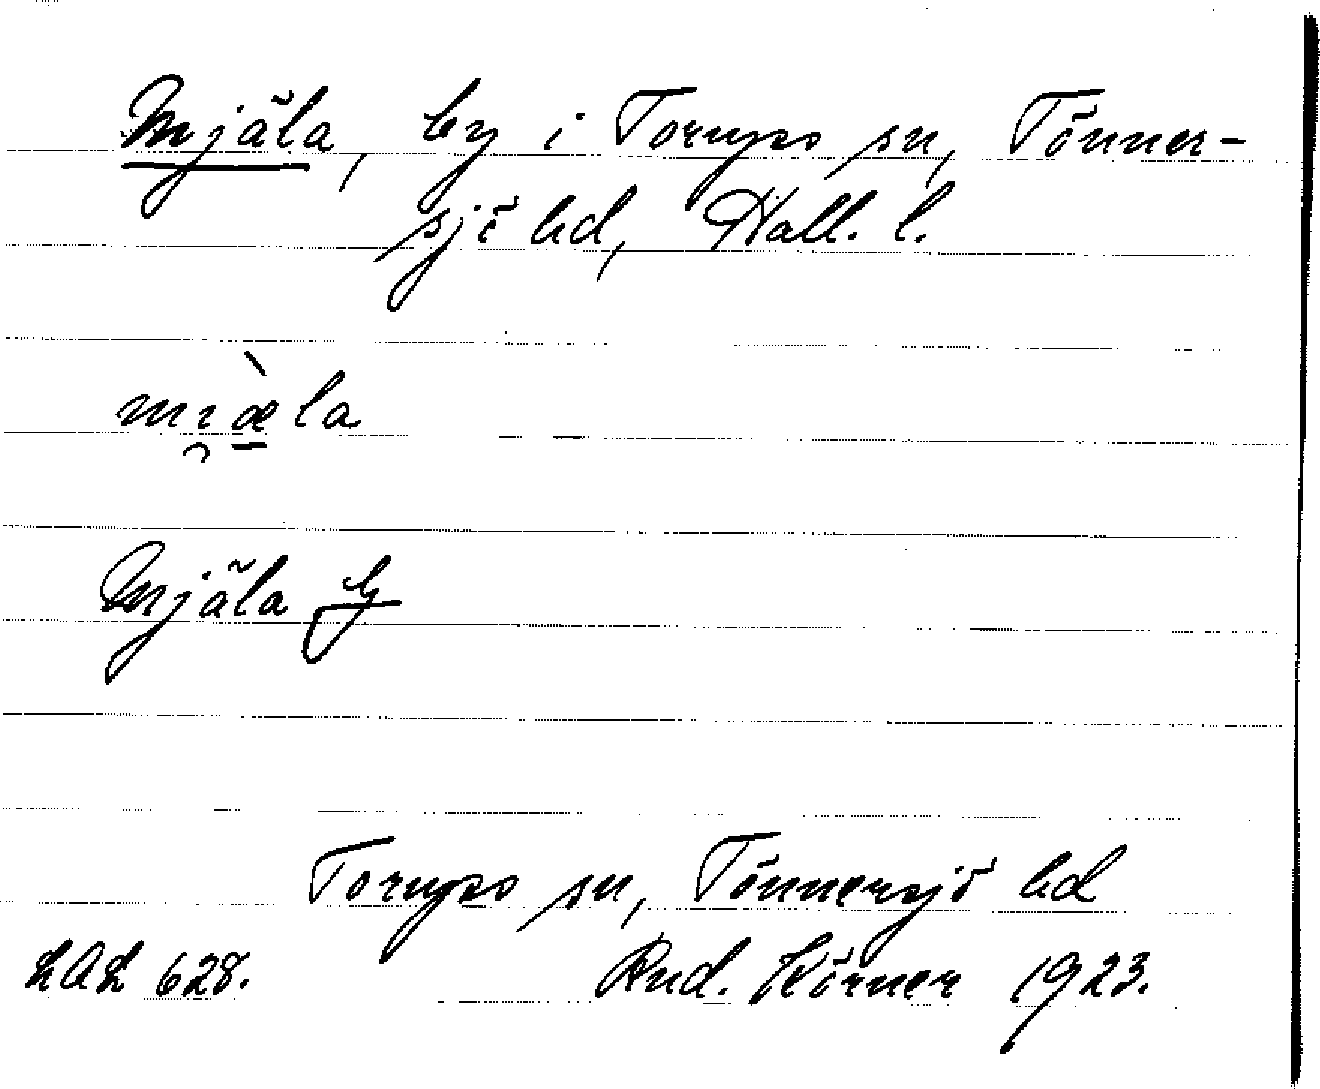 Mjäla, by i Torups sn, Tönner-
sjö hd, Hall. l.
mi̯æ̀la
Mjäla by
Torups sn, Tönnersjö hd
LAL 628. Rud. Körner 1923.